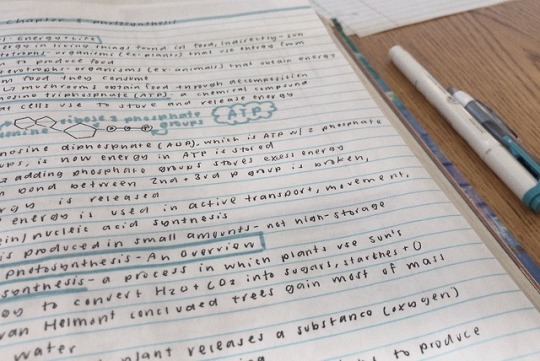 Chapter 8 photosynthesis
Energy + Life
energy in living things found in food, indirectly - sun
organisms (ex: plants) that use energy from
to produce food
heterotrophs - organisms (ex: animals) that obtain energy
from food they consume
mushrooms obtain food through decomposition
adenosine triphosphate (ATP) - a chemical compound
that cells use to store and release energy
adenine ribose 3 phosphate groups ATP
adenosine diphosphate (ADP), which is ATP w/ 2 phosphate
groups, is how energy in ATP is stored
adding phosphate groups stores excess energy
bond between 2nd + 3rd p group is broken,
energy is released
energy is used in active transport, movement,
protein/nucleic acid synthesis
is produced in small amounts - not high-storage
photosynthesis - An Overview
photosynthesis - a process in which plants use sun's
energy to convert H2O + CO2 into sugars, starches + O
van Helmont concluded trees gain most of mass
water
plant releases a substance (oxygen)
to produce